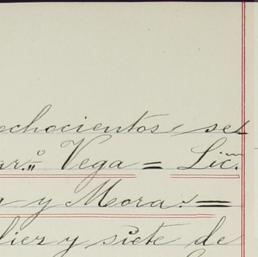 ochocientos se
ar.º Vega = Licⁿ.
y Mora. =
diez y siete de